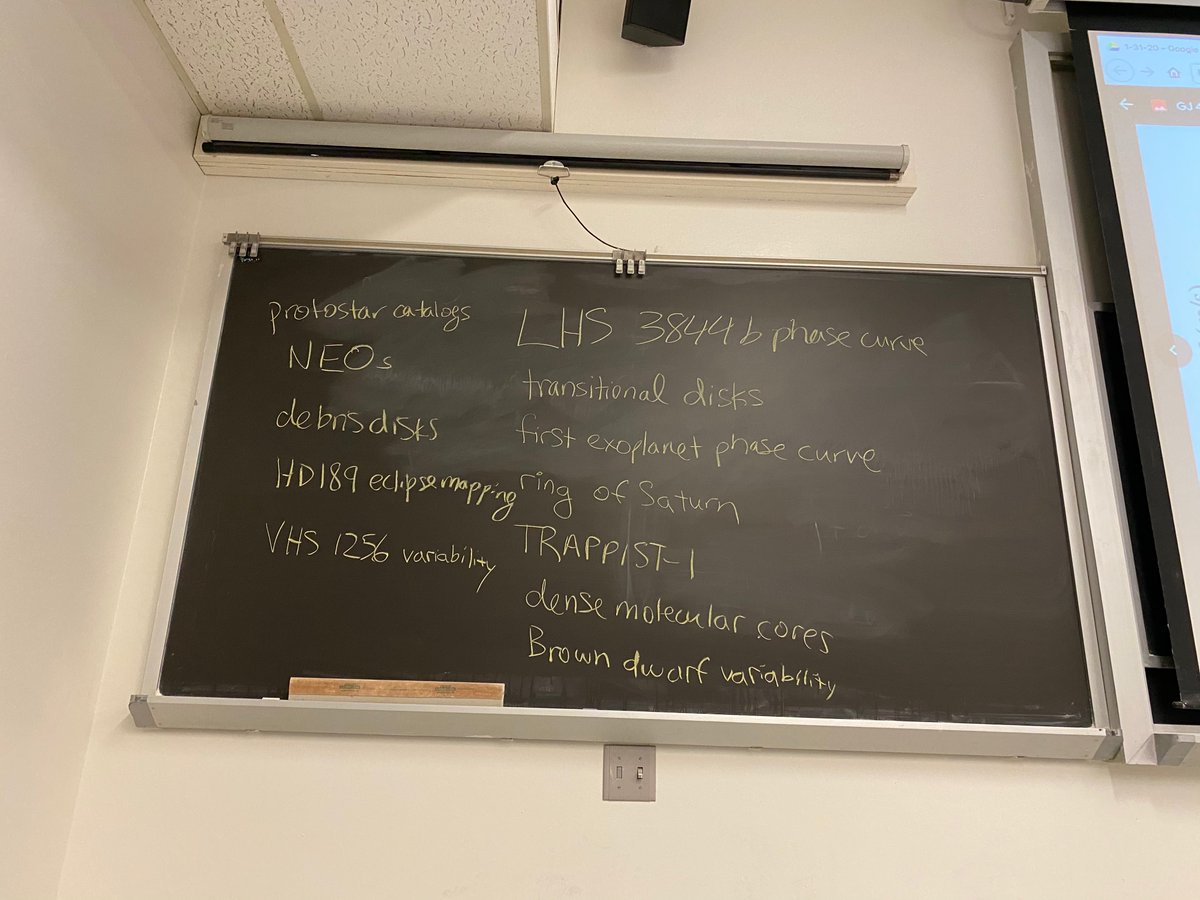 protostar catalogs
NEOs
debris disks
HD189 eclipse mapping
VHS 1256 variability
LHS 3844b phase curve
transitional disks
first exoplanet phase curve
ring of Saturn
TRAPPIST-1
dense molecular cores
Brown dwarf variability
1-31-20 - Google
GJ 4